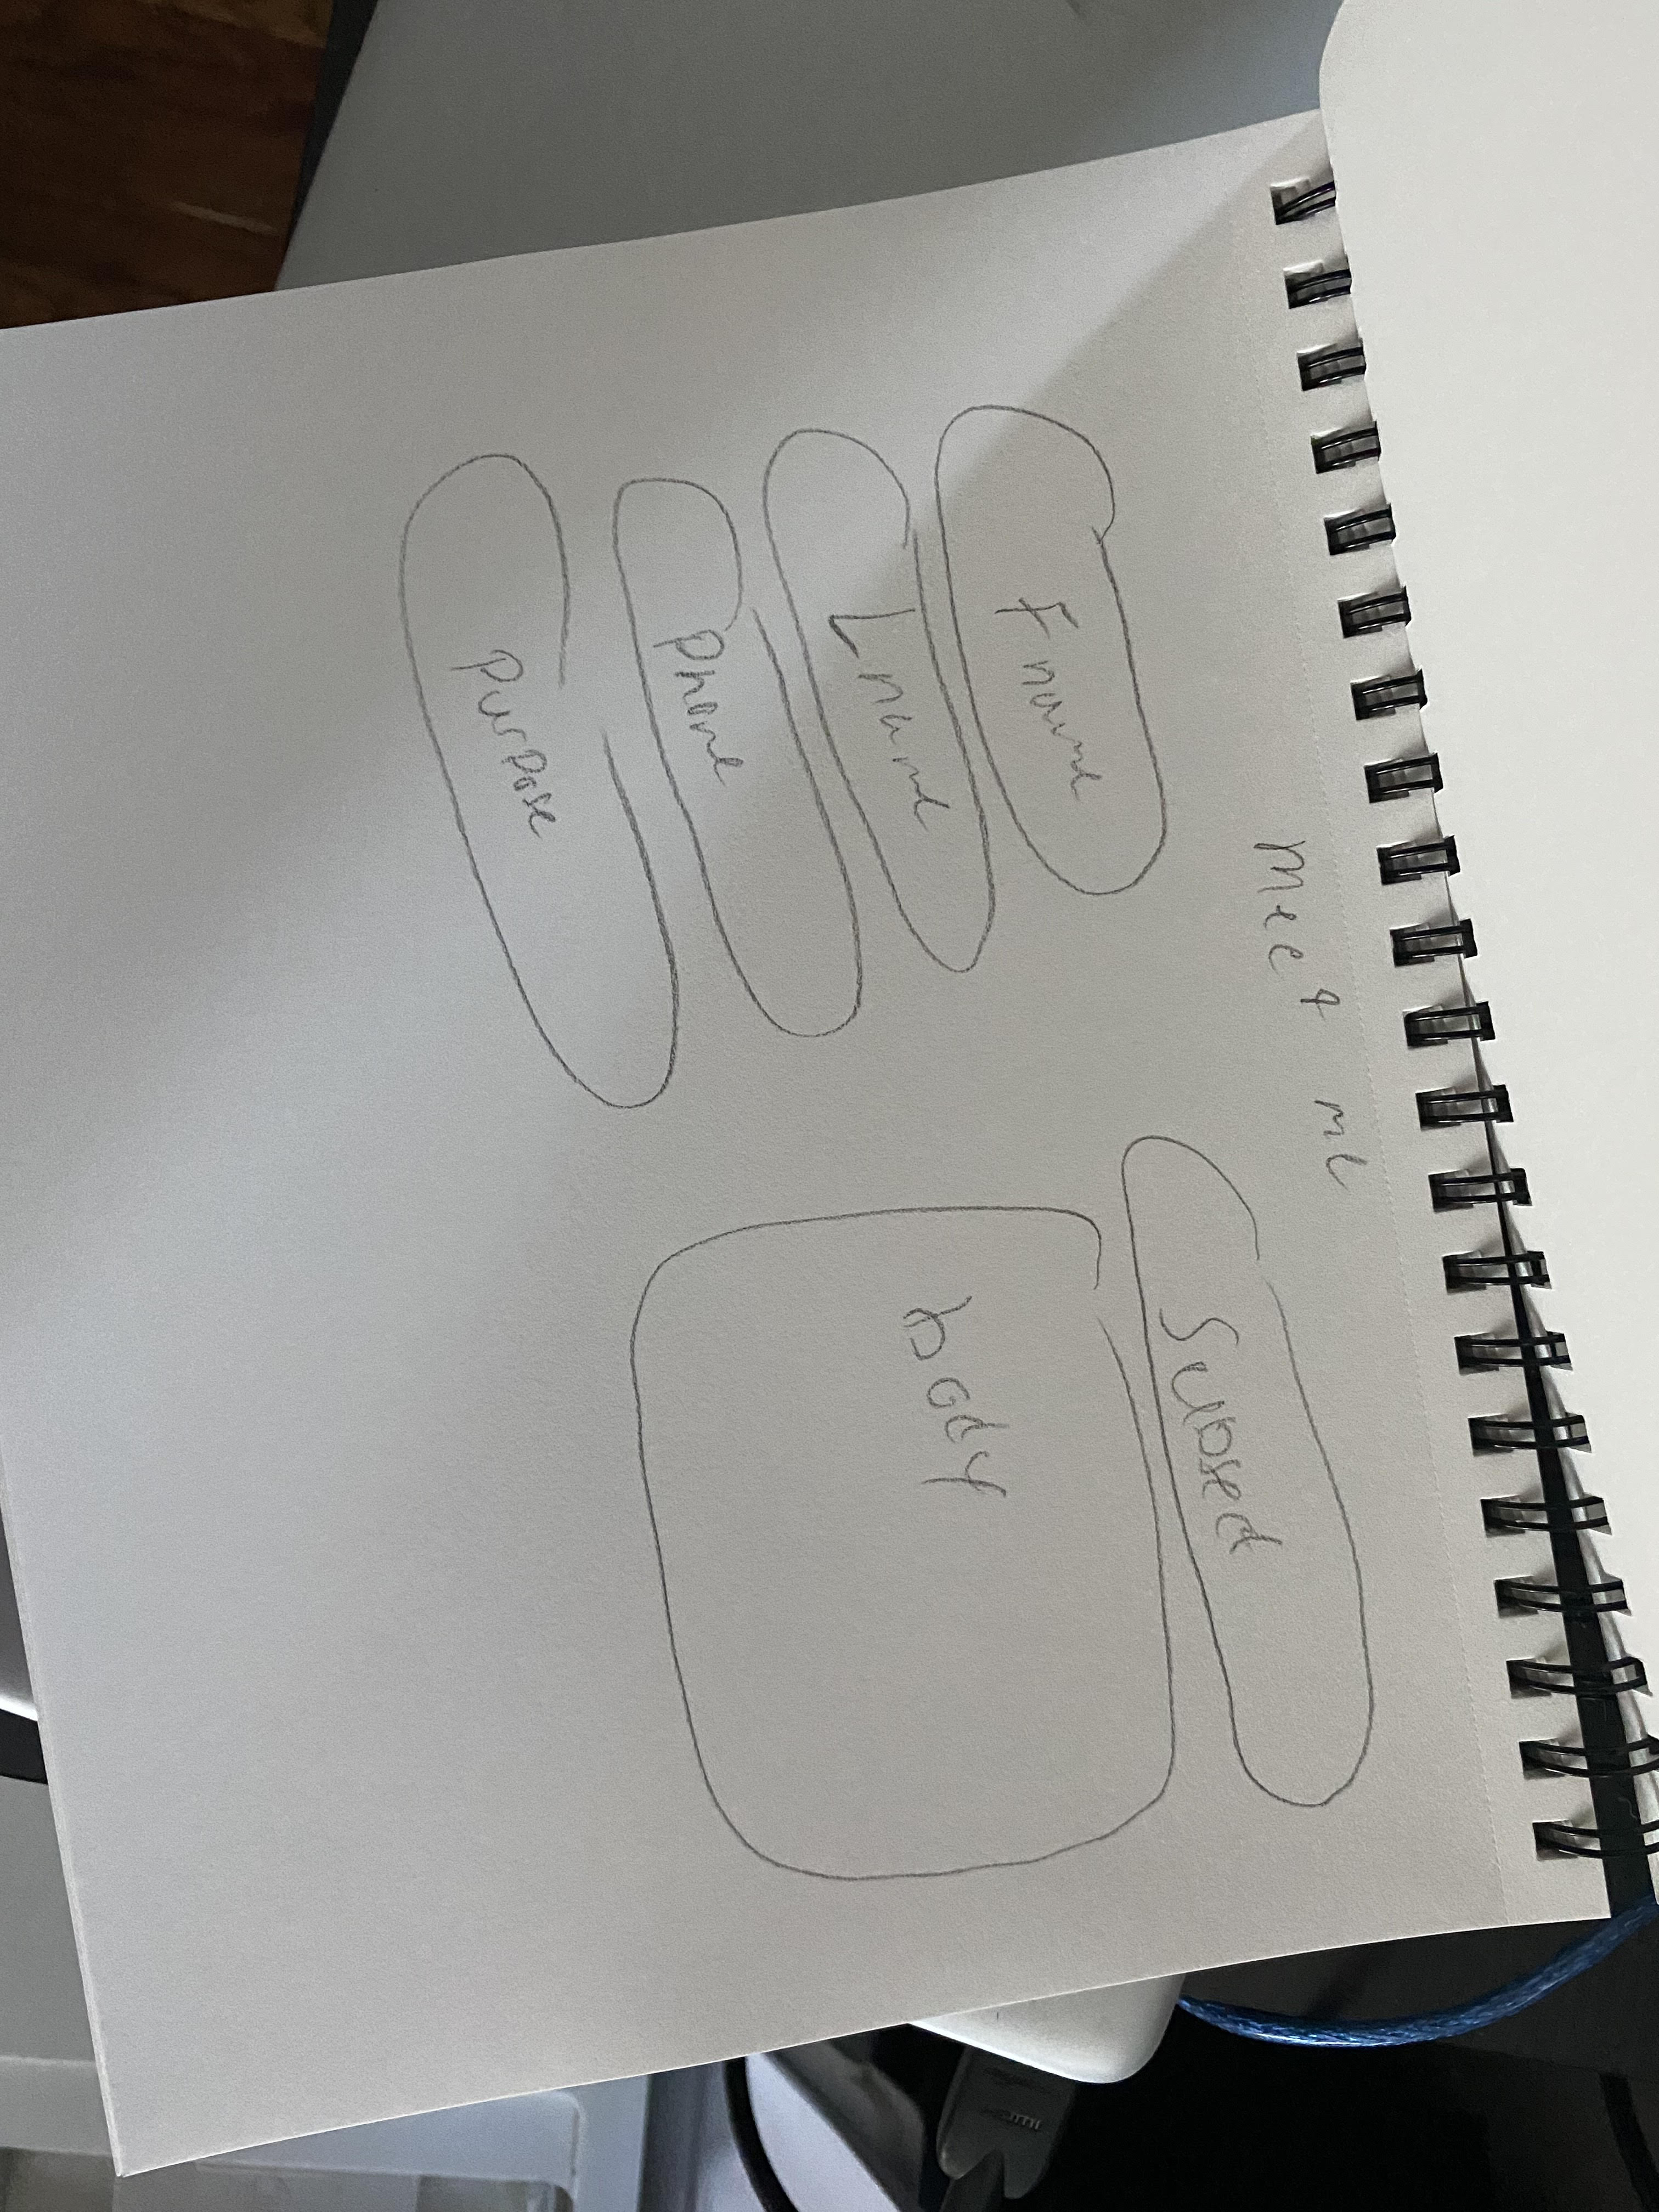 Meet me
Fname
Lname
Phone
Purpose
Subsed
body